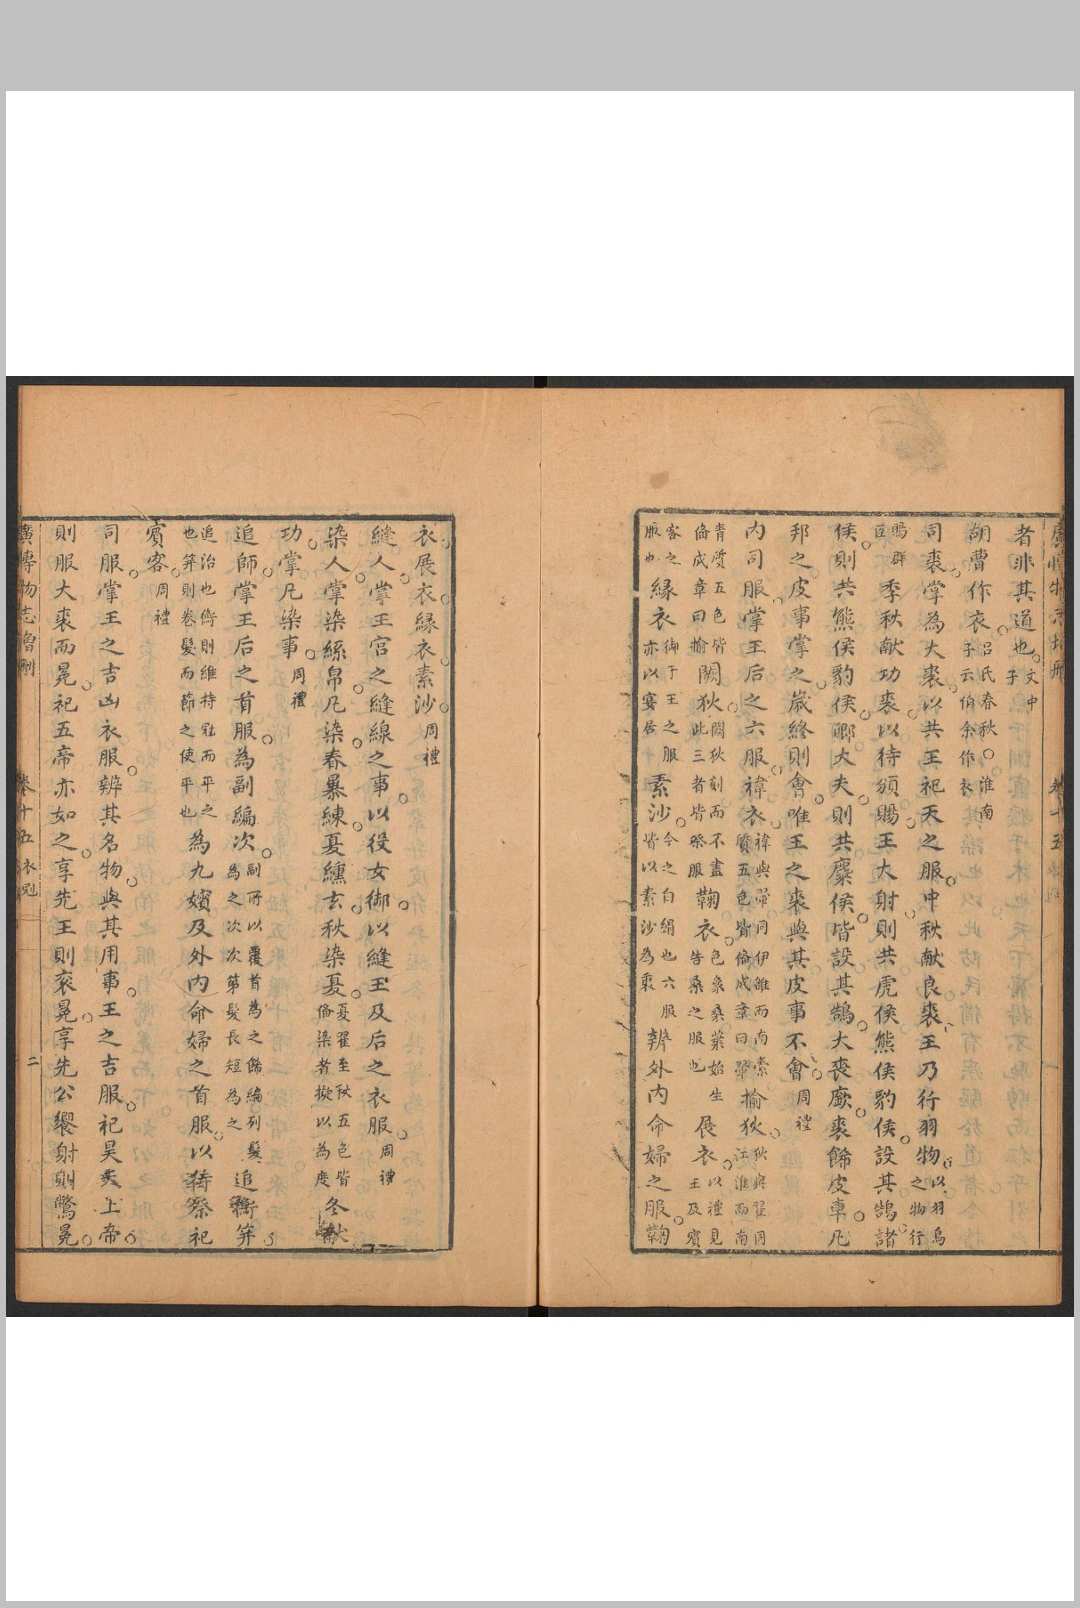 廣博物志增刪 卷十五
者非其道也文中子
胡曹作衣呂氏春秋淮南子云伯余作衣
司裘掌為大裘以共王祀天之服中秋献良裘王乃行羽物以羽鳥之物行
賜群臣季秋献功裘以待頒賜王大射則共虎侯熊侯豹侯設其鵠諸
侯則共熊侯豹侯卿大夫則共麋侯皆設其鵠大喪廞裘飾皮車凡
邦之皮事掌之歲終則會唯王之裘與其皮事不會周禮
內司服掌王后之六服褘衣褘與翬同伊雒而南素質五色皆俻成章曰翬揄狄狄與翟同江淮而南
青質五色皆俻成章曰揄闕狄闕狄刻而不畫此三者皆祭服鞠衣色象桑葉始生告桑之服也展衣以禮見王及賓
客之服也緣衣御于王之服亦以宴居素沙今之白絹也六服皆以素沙為裏辨外內命婦之服鞠
衣展衣緣衣素沙周禮
縫人掌王宮之縫線之事以役女御以縫王及后之衣服周禮
染人掌染絲帛凡染春暴練夏纁玄秋染夏夏翟至秋五色皆俻染者擬以為度冬献
功掌凡染事周禮
追師掌王后之首服為副編次副所以覆首為之飾編列髮為之次次第髮長短為之追衡笄
追治也衡則維持冠而平之也笄則卷髮而節之使平也為九嬪及外內命婦之首服以待祭祀
賓客周禮
司服掌王之吉凶衣服辨其名物與其用事王之吉服祀昊天上帝
則服大裘而冕祀五帝亦如之享先王則衮冕享先公饗射則鷩冕
廣博物志增刪 卷十五 衣冠 二